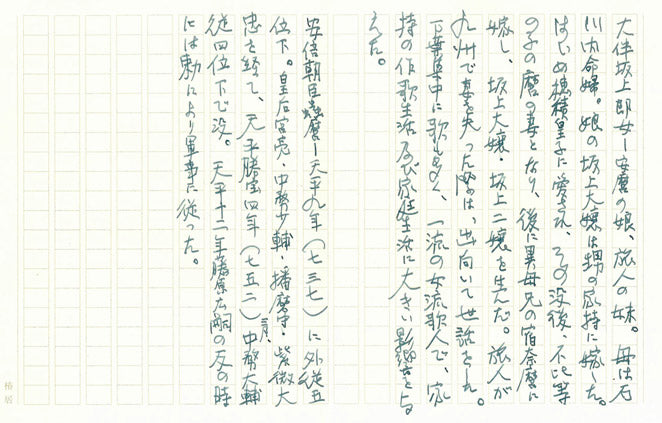 大伴坂上郎女ー安麿の娘、旅人の妹。母は石
川内命婦。娘の坂上大嬢は甥の家持に嫁した。
はじめ穂積皇子に愛され、その没後、不比等
の子の麿の妻となり、後に異母兄の宿奈麿に
嫁し、坂上大嬢・坂上二嬢を生んだ。旅人が
九州で妻を失った時は、出向いて世話をした。
万葉集中に歌も多く、一流の女流歌人で、家
持の作歌生活及び家庭生活に大きい影響を与
えた。
安倍朝臣虫麿ー天平九年(七三七)に外従五
位下。皇后宮亮・中務少輔・播磨守・紫微大
忠を経て、天平勝宝四年(七五二)三月、中務大輔
従四位下で没。天平十二年藤原広嗣の反の時
には勅により軍事に従った。
橋居